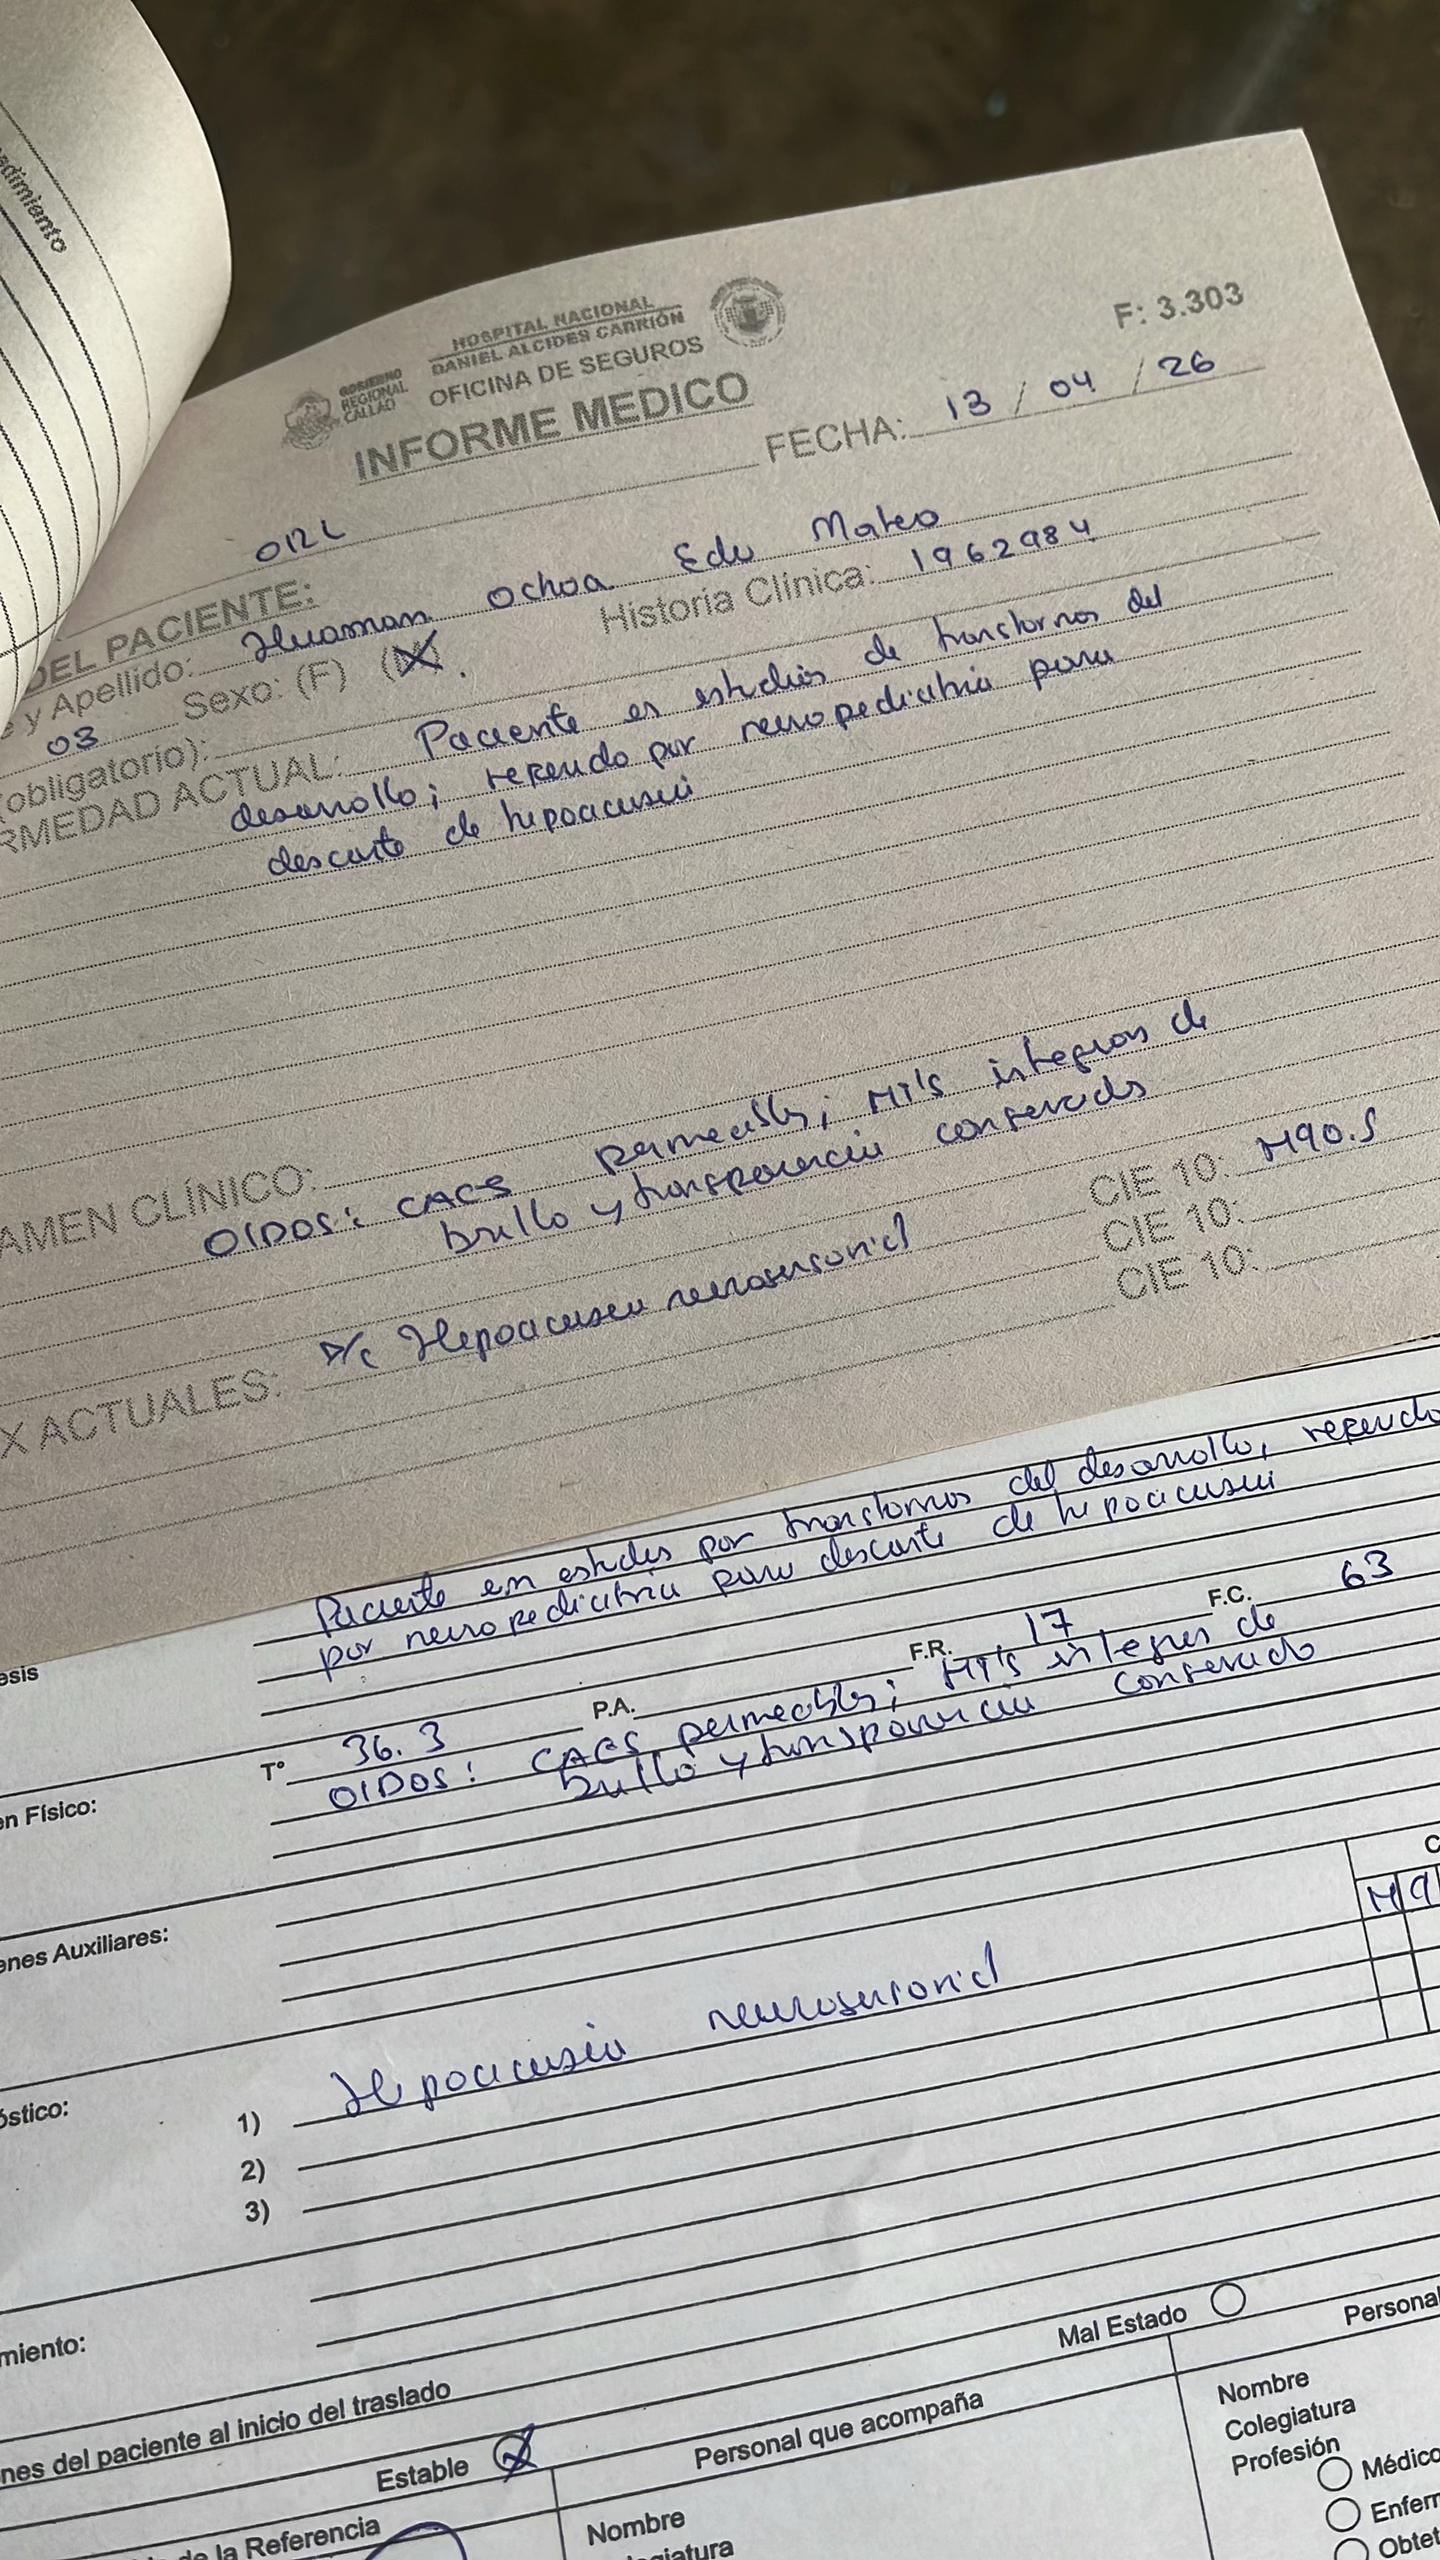 edimiento
HOSPITAL NACIONAL
DANIEL ALCIDES CARRIÓN
GOBIERNO
REGIONAL
CALLAO
OFICINA DE SEGUROS
INFORME MEDICO
F: 3.303
FECHA: 13 / 04 / 26
ORL
DEL PACIENTE:
e y Apellido: Huaman Ochoa Edu Mateo
03 Sexo: (F) (M) Historia Clínica: 1962984
(obligatorio):
RMEDAD ACTUAL: Paciente es estudios de transtornos del
desarrollo; referido por neuropediatria para
descarte de hipoacusia
AMEN CLÍNICO:
OIDOS: CAES permeables; MT's integras de
brillo y transparencia conservada
X ACTUALES: D/c Hipoacusia neurosensorial CIE 10: H90.5
CIE 10:
CIE 10:
Paciente en estudios por transtornos del desarrollo, referido
por neuropediatria para descarte de hipoacusia
esis
T° 36.3 P.A. F.R. 17 F.C. 63
en Físico: OIDOS: CAES permeables; MT's integras de
brillo y transparencia conservado
enes Auxiliares:
C
H 9
óstico:
1) Hipoacusia neurosensorial
2)
3)
miento:
nes del paciente al inicio del traslado
Estable
Mal Estado
de la Referencia
Personal que acompaña
Personal
Nombre
Nombre
Colegiatura
Profesión
Médico
Enferm
Obtet
egiatura